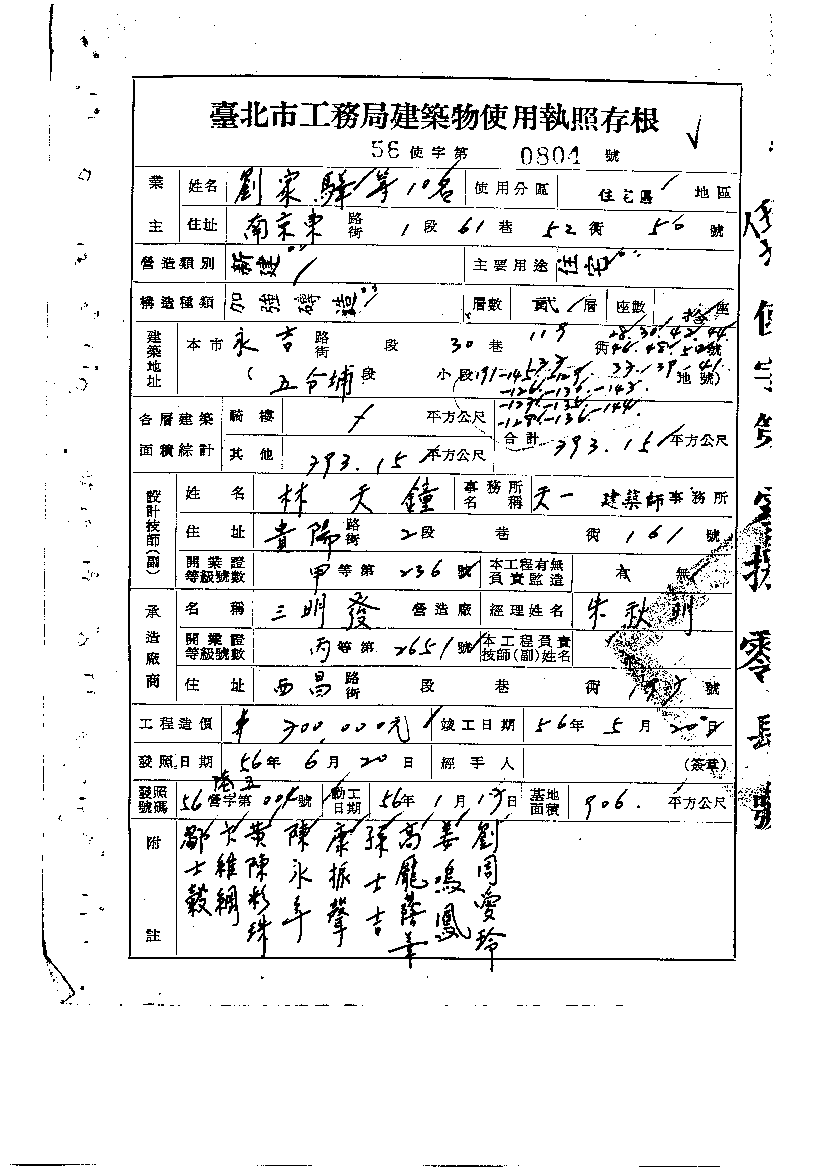 臺北市工務局建築物使用執照存根
56 使字第 0804 號
業主 姓名 劉家驊等10名 使用分區 住宅區 地區
住址 南京東 路街 1 段 61 巷 52 衖 56 號
營造類別 新建 主要用途 住宅
構造種類 加強磚造 層數 貳 層 座數 座
建築地址 本市 永吉 路街 段 30 巷 119 衖 28.30.42.44. 號
46.48.50
33.39.41
( 五分埔 段 小段 191-145 地號)
-126.-130.-143.
-136.-144.
各層建築面積綜計 騎樓 / 平方公尺
其他 393.15 平方公尺 合計 393.15 平方公尺
設計技師(副) 姓名 林天鐘 事務所名稱 天一 建築師事務所
住址 貴陽 路街 2 段 巷 衖 161 號
開業證等級號數 甲 等第 236 號 本工程有無負責監造 有 無
承造廠商 名稱 三明發 營造廠 經理姓名 朱秋則
開業證等級號數 丙 等第 2651 號 本工程負責技師(副)姓名
住址 西昌 路街 段 巷 衖 號
工程造價 300,000元 竣工日期 56 年 5 月 20 日
發照日期 56 年 6 月 20 日 經手人 (簽章)
發照號碼 56 營字第 004 號 動工日期 56 年 1 月 17 日 基地面積 906. 平方公尺
附註
劉周愛玲
姜鳴鳳
孫士吉
康振聲
陳永年
黃陳彩珠
鄒士毅